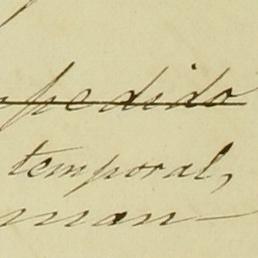 mpedido
temporal,
man-